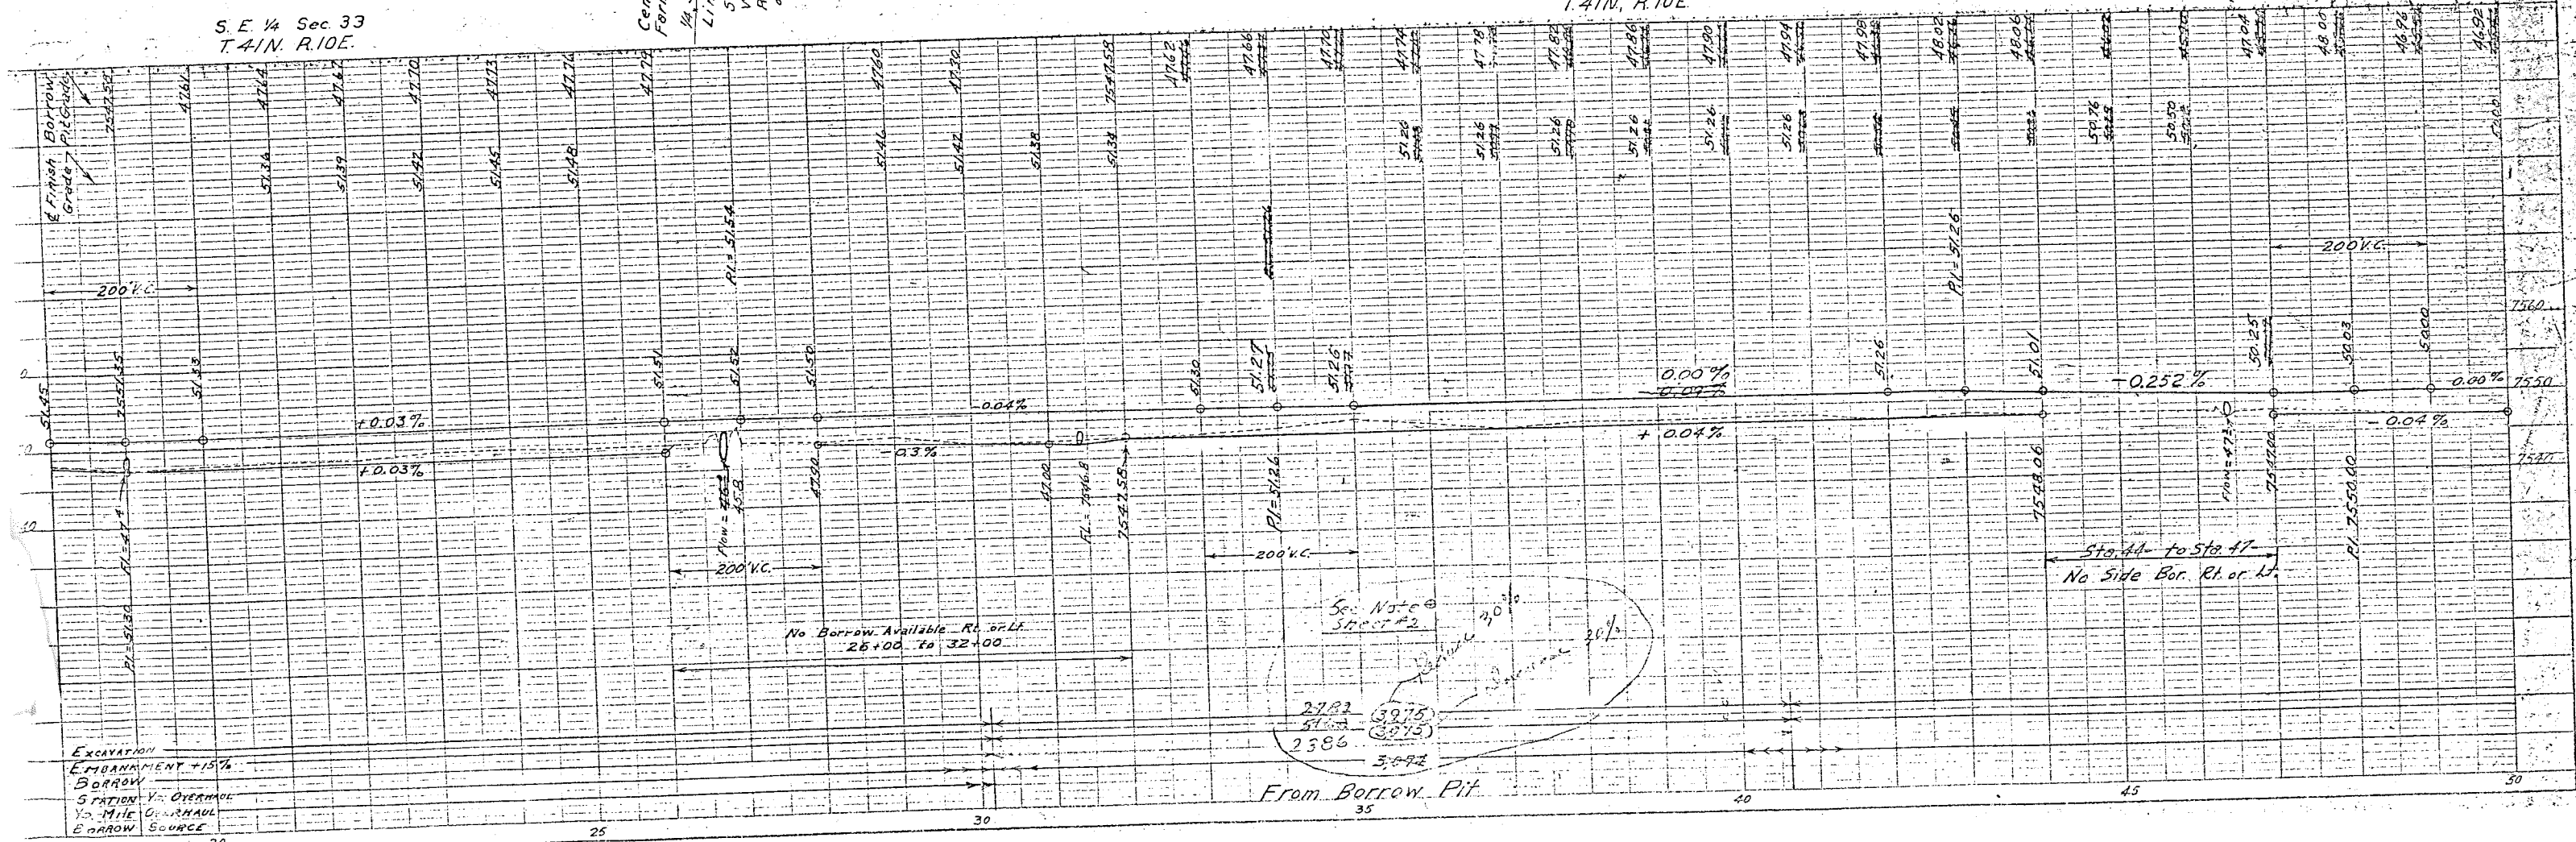 S. E. ¼ Sec. 33
T. 41N. R.10E.
T. 41N, R.10E
℄ Finish Borrow
Grade Pit Grade
7547.58
47.61
47.64
47.67
47.70
47.73
47.76
47.79
47.60
47.30
7547.58
47.62
47.66
47.70
47.74
47.78
47.82
47.86
47.90
47.94
47.98
48.02
48.06
47.04
48.00
46.96
46.92
51.36
51.39
51.42
51.45
51.48
51.46
51.42
51.38
51.34
51.26
51.26
51.26
51.26
51.26
51.26
50.76
50.50
50.00
P.I. = 51.54
P.I. = 51.26
200' V.C.
200' V.C.
7560
51.45
7551.35
51.33
51.51
51.52
51.50
51.30
51.27
51.26
51.26
51.01
50.25
50.03
50.00
0.00%
-0.252%
0.00%
7550
+0.03%
-0.04%
+0.03%
-0.3%
+ 0.04%
-0.04%
7540
Fl. = 47.4
Flow =
45.8
47.90
47.00
FL = 7546.8
7547.58
P.I. = 51.26
7548.06
Flow = 47
7547.20
P.I. 7550.00
P.I. = 51.30
200' V.C.
200' V.C.
Sta. 44 to Sta. 47
No Side Bor. Rt. or Lt.
No Borrow Available Rt. or Lt.
26+00 to 32+00
See Note ⊕
Sheet #2
20%
20%
2783
3975
3975
2386
EXCAVATION
EMBANKMENT +15%
BORROW
STATION Y. OVERHAUL
YD. MILE OVERHAUL
BORROW SOURCE
From Borrow Pit
25
30
35
40
45
50